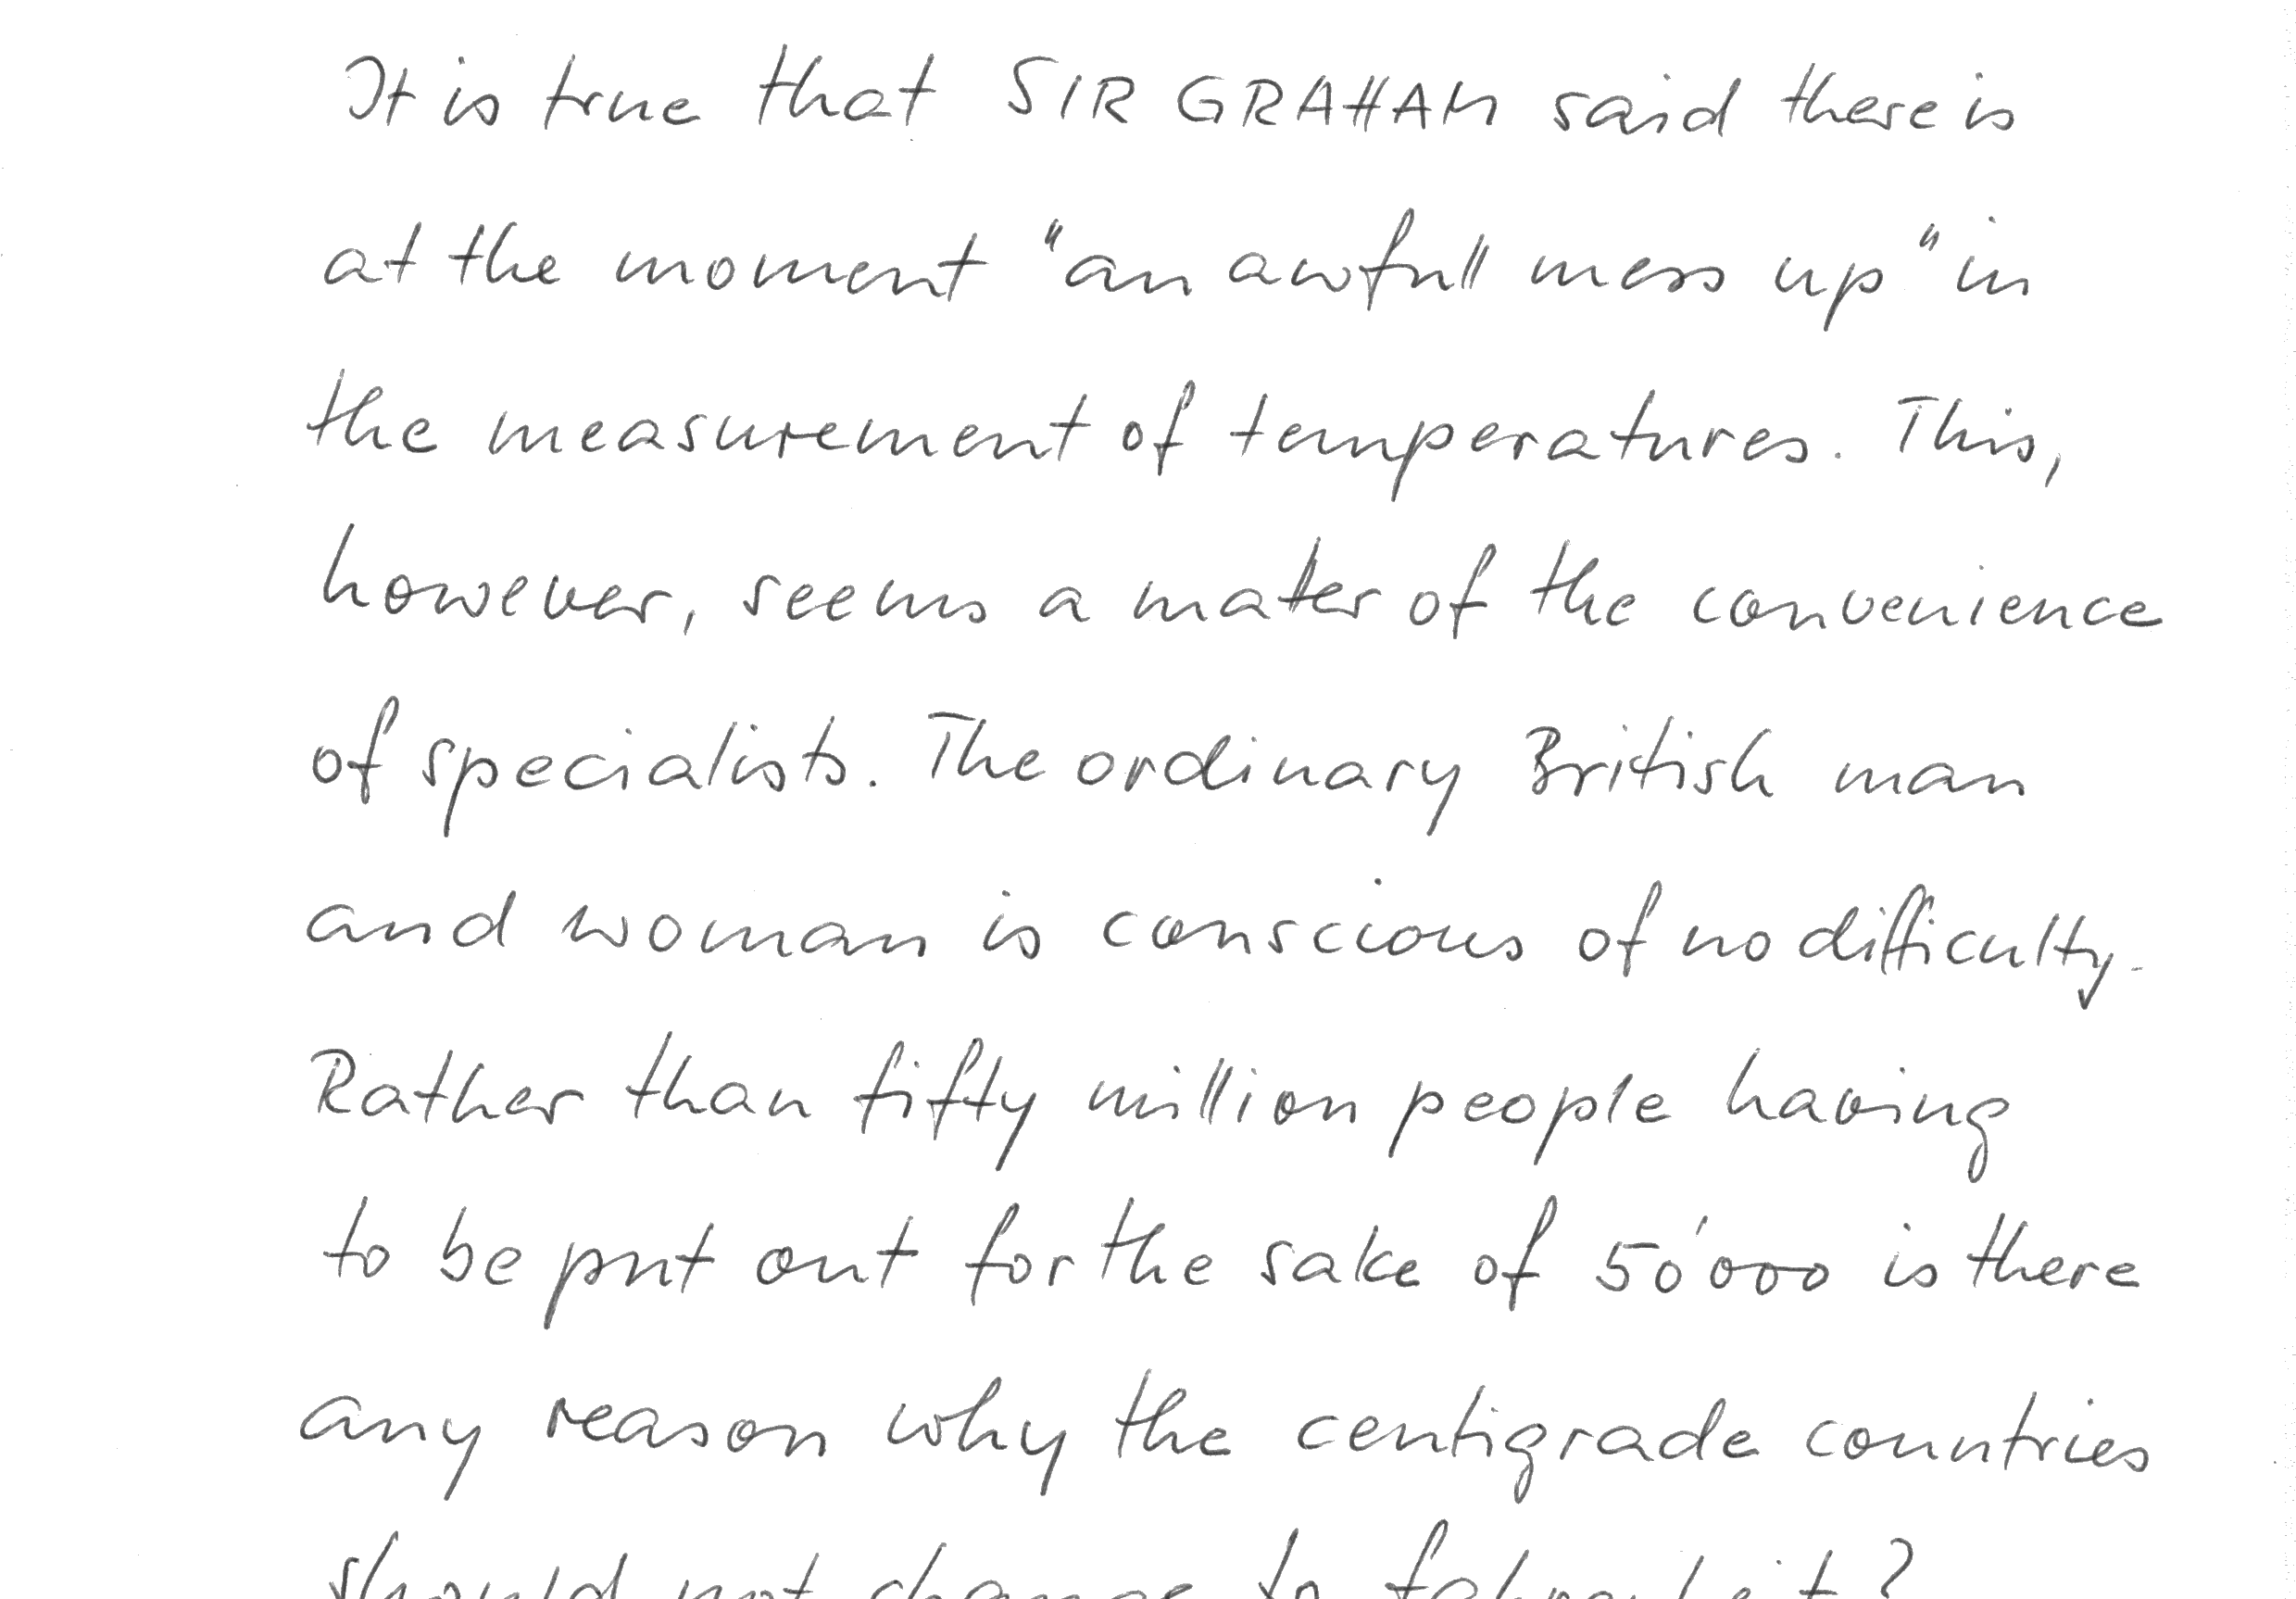 It is true that SIR GRAHAM said there is
at the moment "an awfull mess up" in
the measurement of temperatures. This,
however, seems a mater of the convenience
of specialists. The ordinary British man
and woman is conscious of no difficulty.
Rather than fifty million people having
to be put out for the sake of 50'000 is there
any reason why the centigrade countries
should not change to fahrenheit?